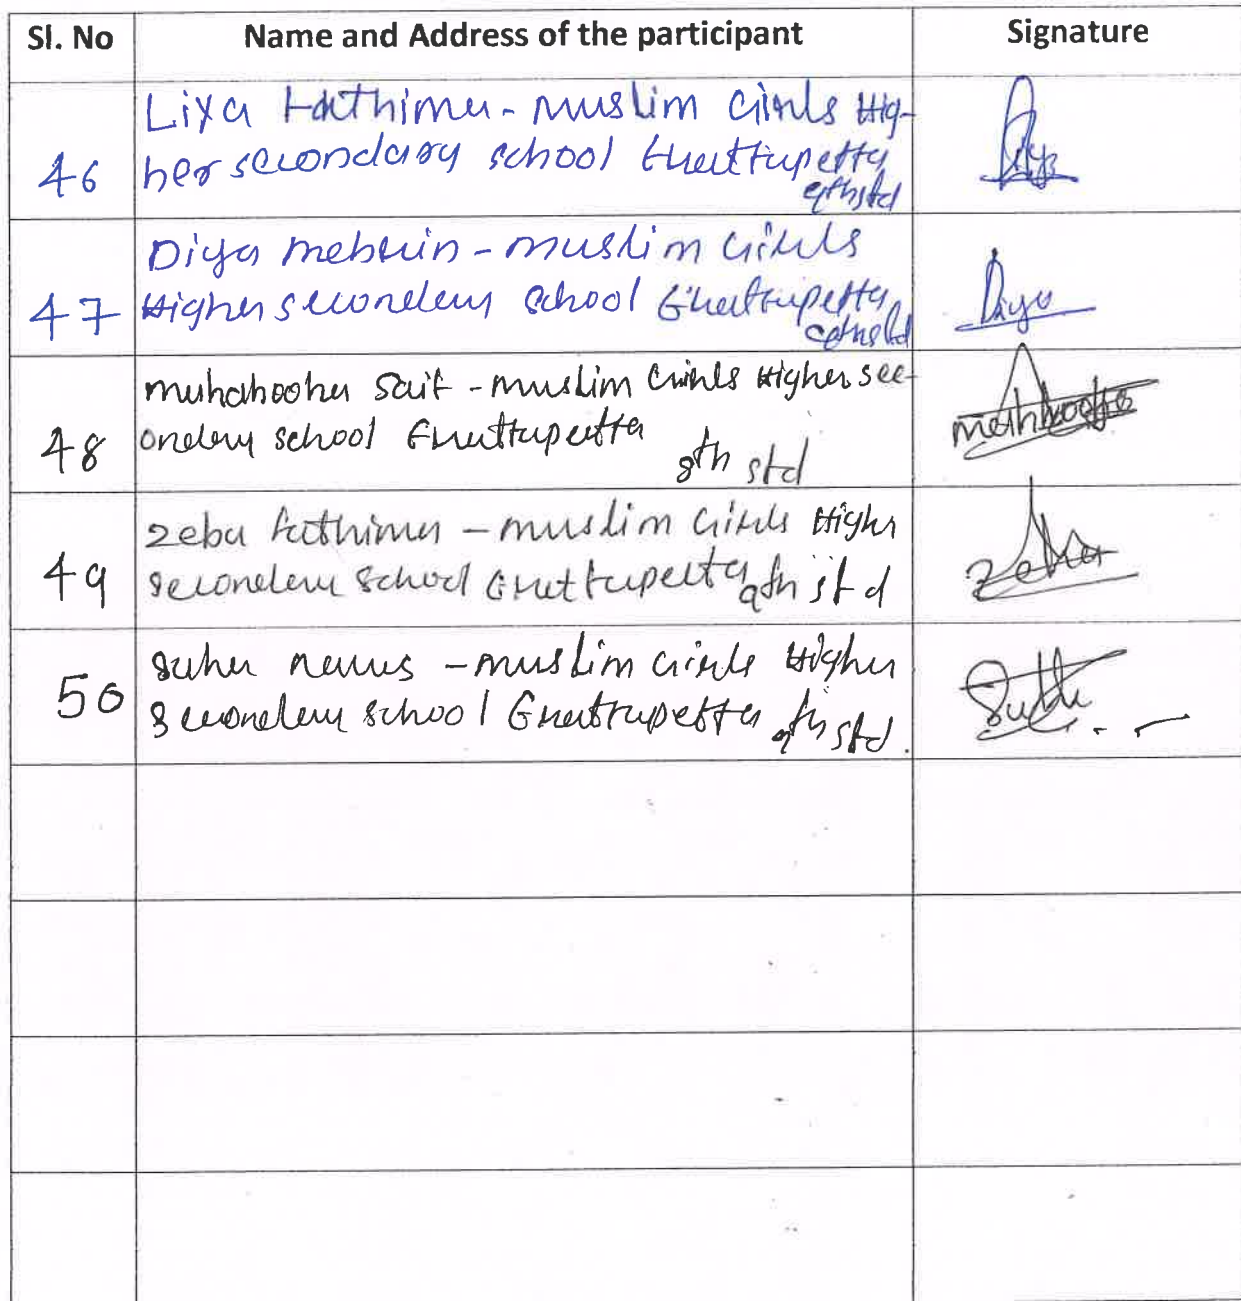 Sl. No Name and Address of the participant Signature
Liya Fathima - Muslim Girls Hig-
46 her secondary school Erattupetta
9th std
Diya Mebrin - Muslim Girls
47 Higher secondary school Erattupetta Diya
9th std
Sait - Muslim Girls Higher sec-
48 ondary school Erattupetta
8th std
Zeba Fathima - Muslim Girls Higher
49 secondary school Erattupetta 9th std Zeba
Suha - Muslim Girls Higher
50 secondary school Erattupetta 9th std.